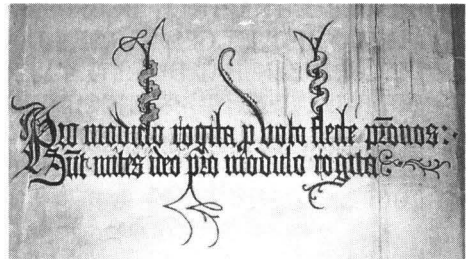 Pro modulo rogita p voto flecte p̄onos:·
Sūt mites ideo pro modulo rogita